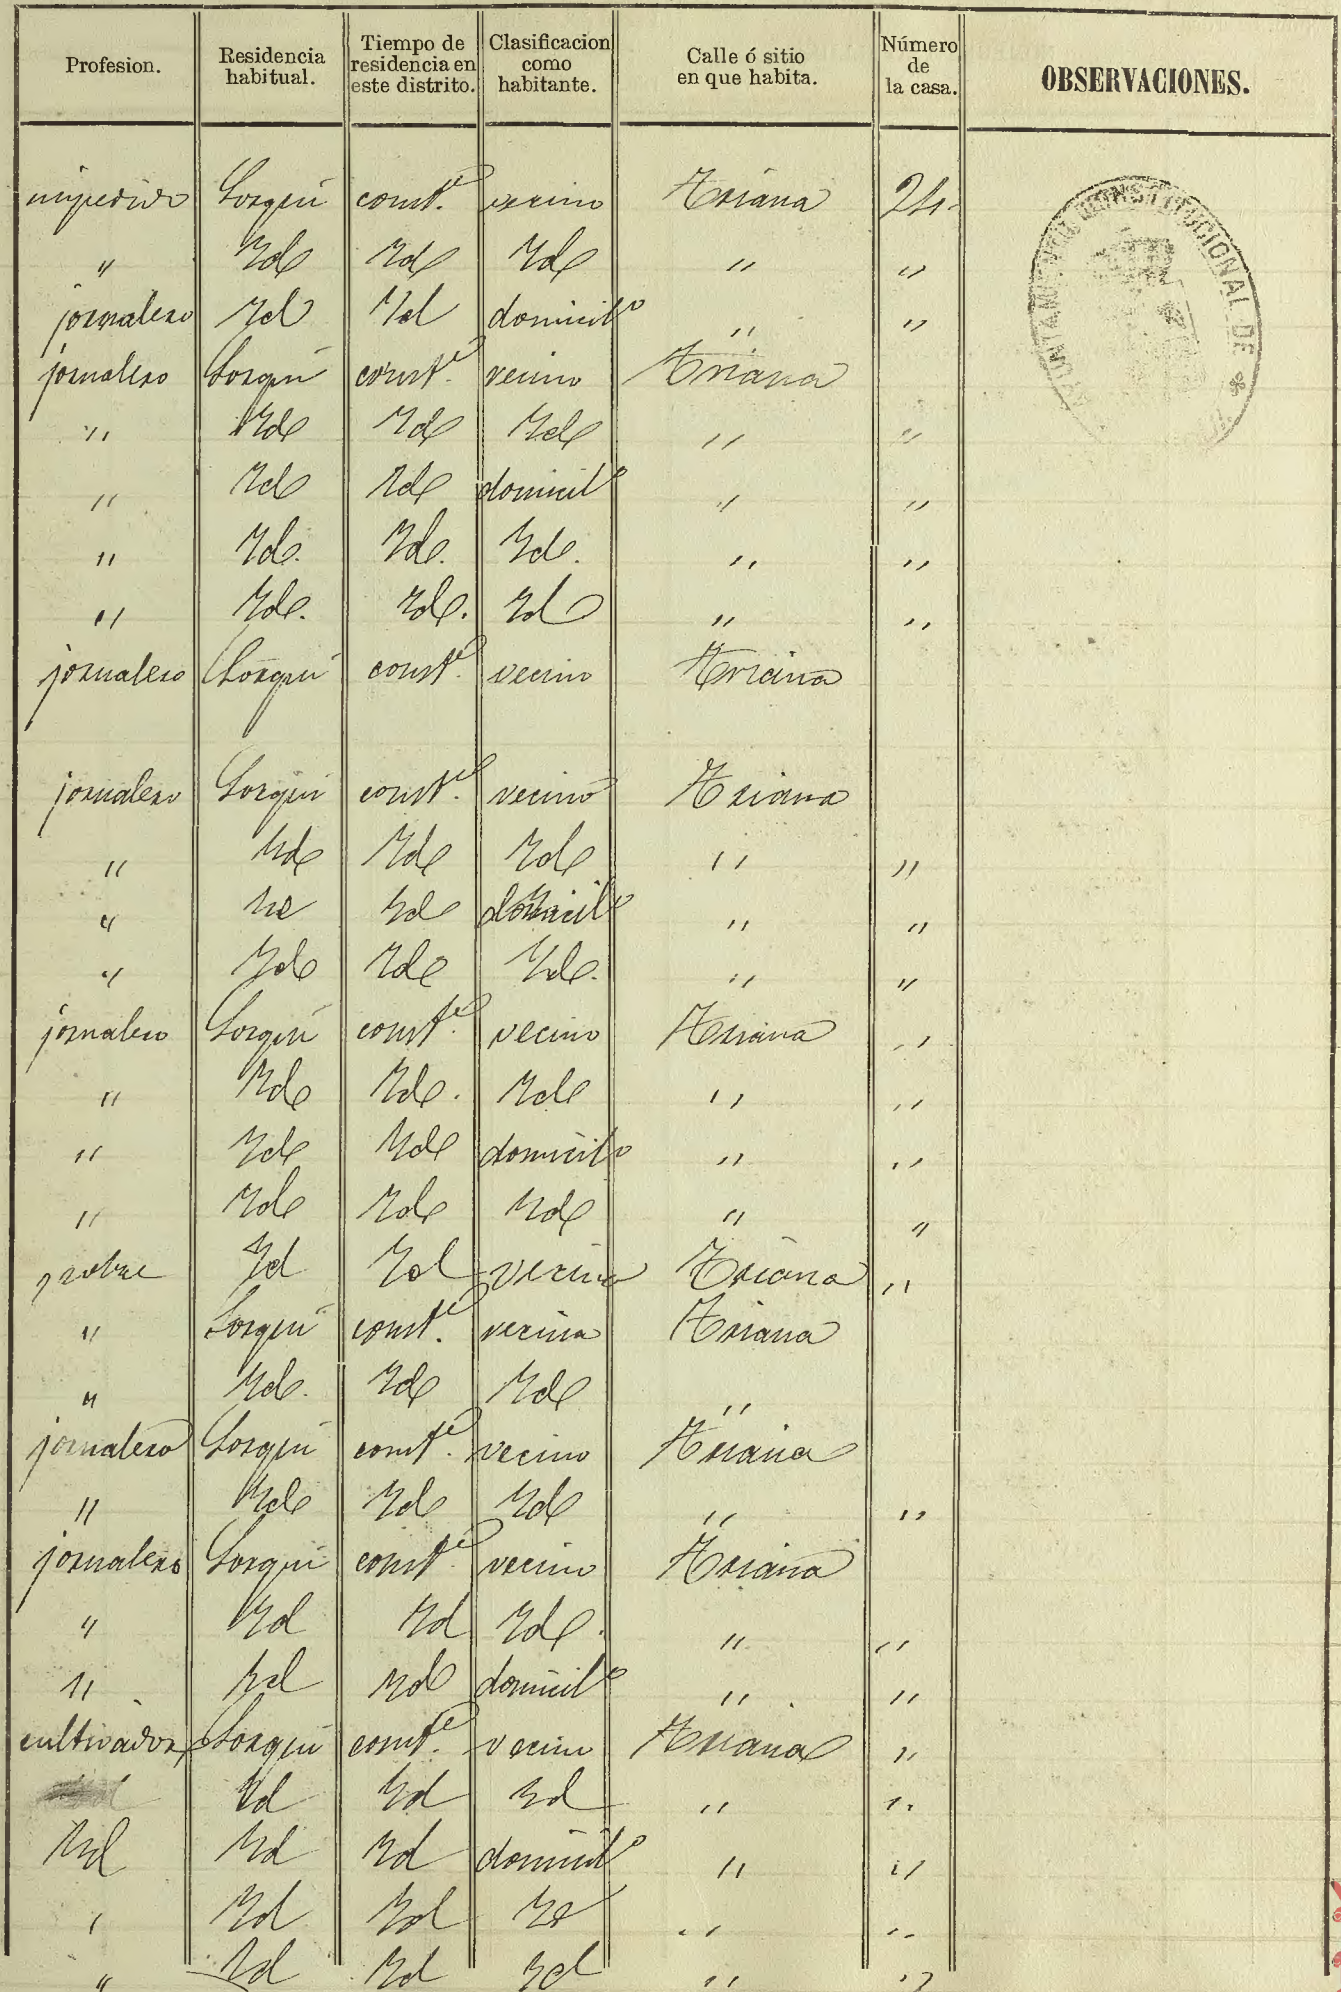 Profesion. | Residencia habitual. | Tiempo de residencia en este distrito. | Clasificacion como habitante. | Calle ó sitio en que habita. | Número de la casa. | OBSERVACIONES.
AYUNTAMIENTO CONSTITUCIONAL DE
impedido Lorquí const.e vecino Triana 24
" Yde Yde Yde " "
jornalero Yd Yd domicil.o " "
jornalero Lorquí const.e vecino Triana
" Yde Yde Yde " "
" Yde Yde domicil.o " "
" Yde. Yde. Yde. " "
" Yde. Yde. Yd " "
jornalero Lorquí const.e vecino Triana
jornalero Lorquí const.e vecino Triana
" Yde Yde Yde " "
" Yde Yde domicil.o " "
" Yde Yde Yde. " "
jornalero Lorquí const.e vecino Triana "
" Yde Yde. Yde " "
" Yde Yde domicil.o " "
" Yde Yde Yde " "
pobre Yd Yd vecina Triana "
" Lorquí const.e vecina Triana
" Yde. Yde Yde "
jornalero Lorquí const.e vecino Triana
" Yde Yde Yde " "
jornalero Lorquí const.e vecino Triana
" Yd Yd Yde. " "
" Yd Yde domicil.o " "
cultivador Lorquí const.e vecino Triana "
Yd Yd Yd " "
Yd Yd Yd domicil.o " "
" Yd Yd Yd " "
" Yd Yd Yd " "